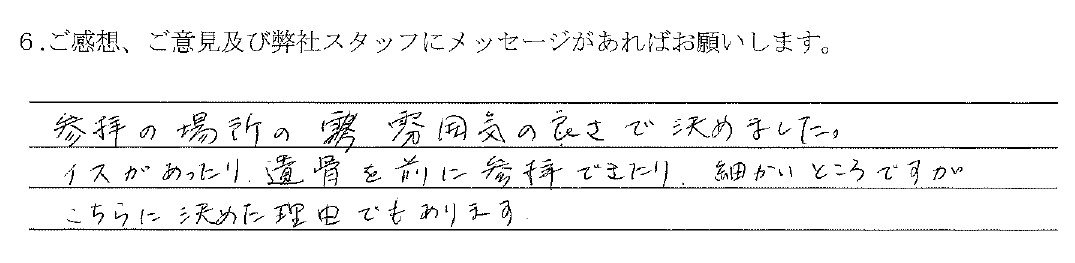 6.ご感想、ご意見及び弊社スタッフにメッセージがあればお願いします。
参拝の場所の雰囲気の良さで決めました。
イスがあったり、遺骨を前に参拝できたり、細かいところですが
こちらに決めた理由でもあります.